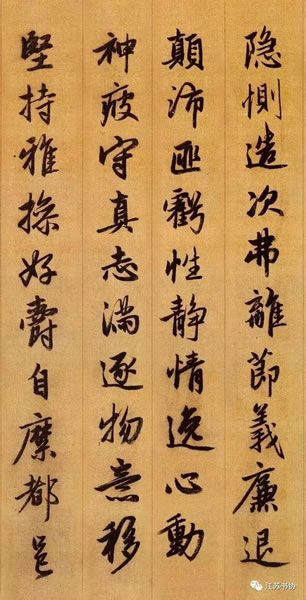 隐惻造次弗離節義廉退
顛沛匪虧性静情逸心動
神疲守真志滿逐物意移
堅持雅操好爵自縻都邑
江苏书协